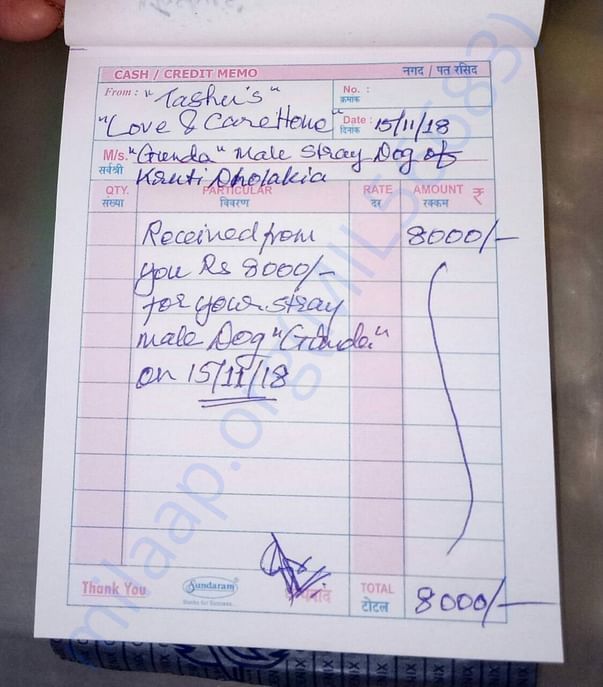 CASH / CREDIT MEMO नगद / पत रसिद
From : "Tashu's"
"Love & Care Home"
No. :
क्रमांक
Date : 15/11/18
दिनांक
M/s. "Gunda" Male Stray Dog of
सर्वश्री Kruti Dholakia
QTY. PARTICULAR RATE AMOUNT ₹
संख्या विवरण दर रक्कम
Received from 8000/-
you Rs 8000/-
for your stray
male Dog "Gunda"
on 15/11/18
Thank You Sundaram धन्यवाद TOTAL 8000/-
टोटल
milaap.org